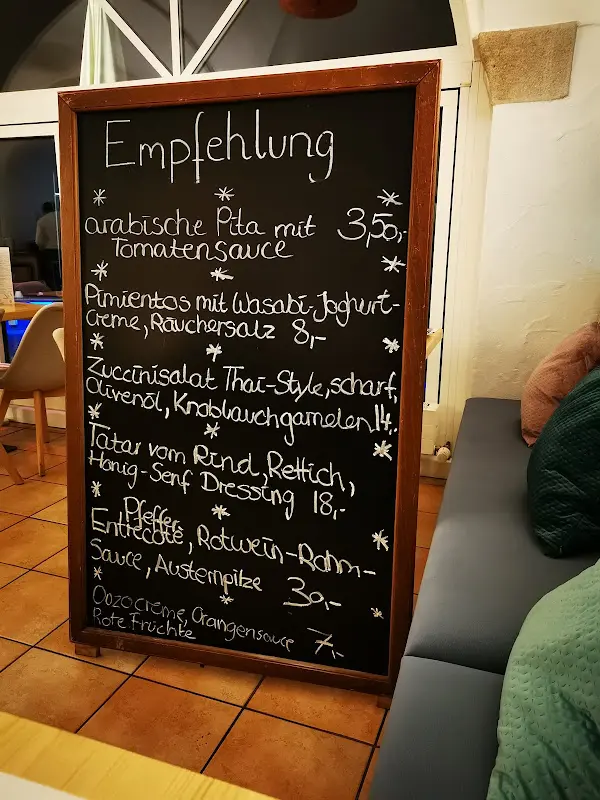 Empfehlung
arabische Pita mit 3,50,-
Tomatensauce
Pimientos mit Wasabi-Joghurt-
Creme, Räuchersalz 8,-
Zuccinisalat Thai-Style, scharf,
Olivenöl, Knoblauchgarnelen 14,-
Tatar vom Rind, Rettich,
Honig-Senf Dressing 18,-
Pfeffer
Entrecôte, Rotwein-Rahm-
Sauce, Austernpilze 30,-
Oozocreme, Orangensauce 7,-
Rote Früchte